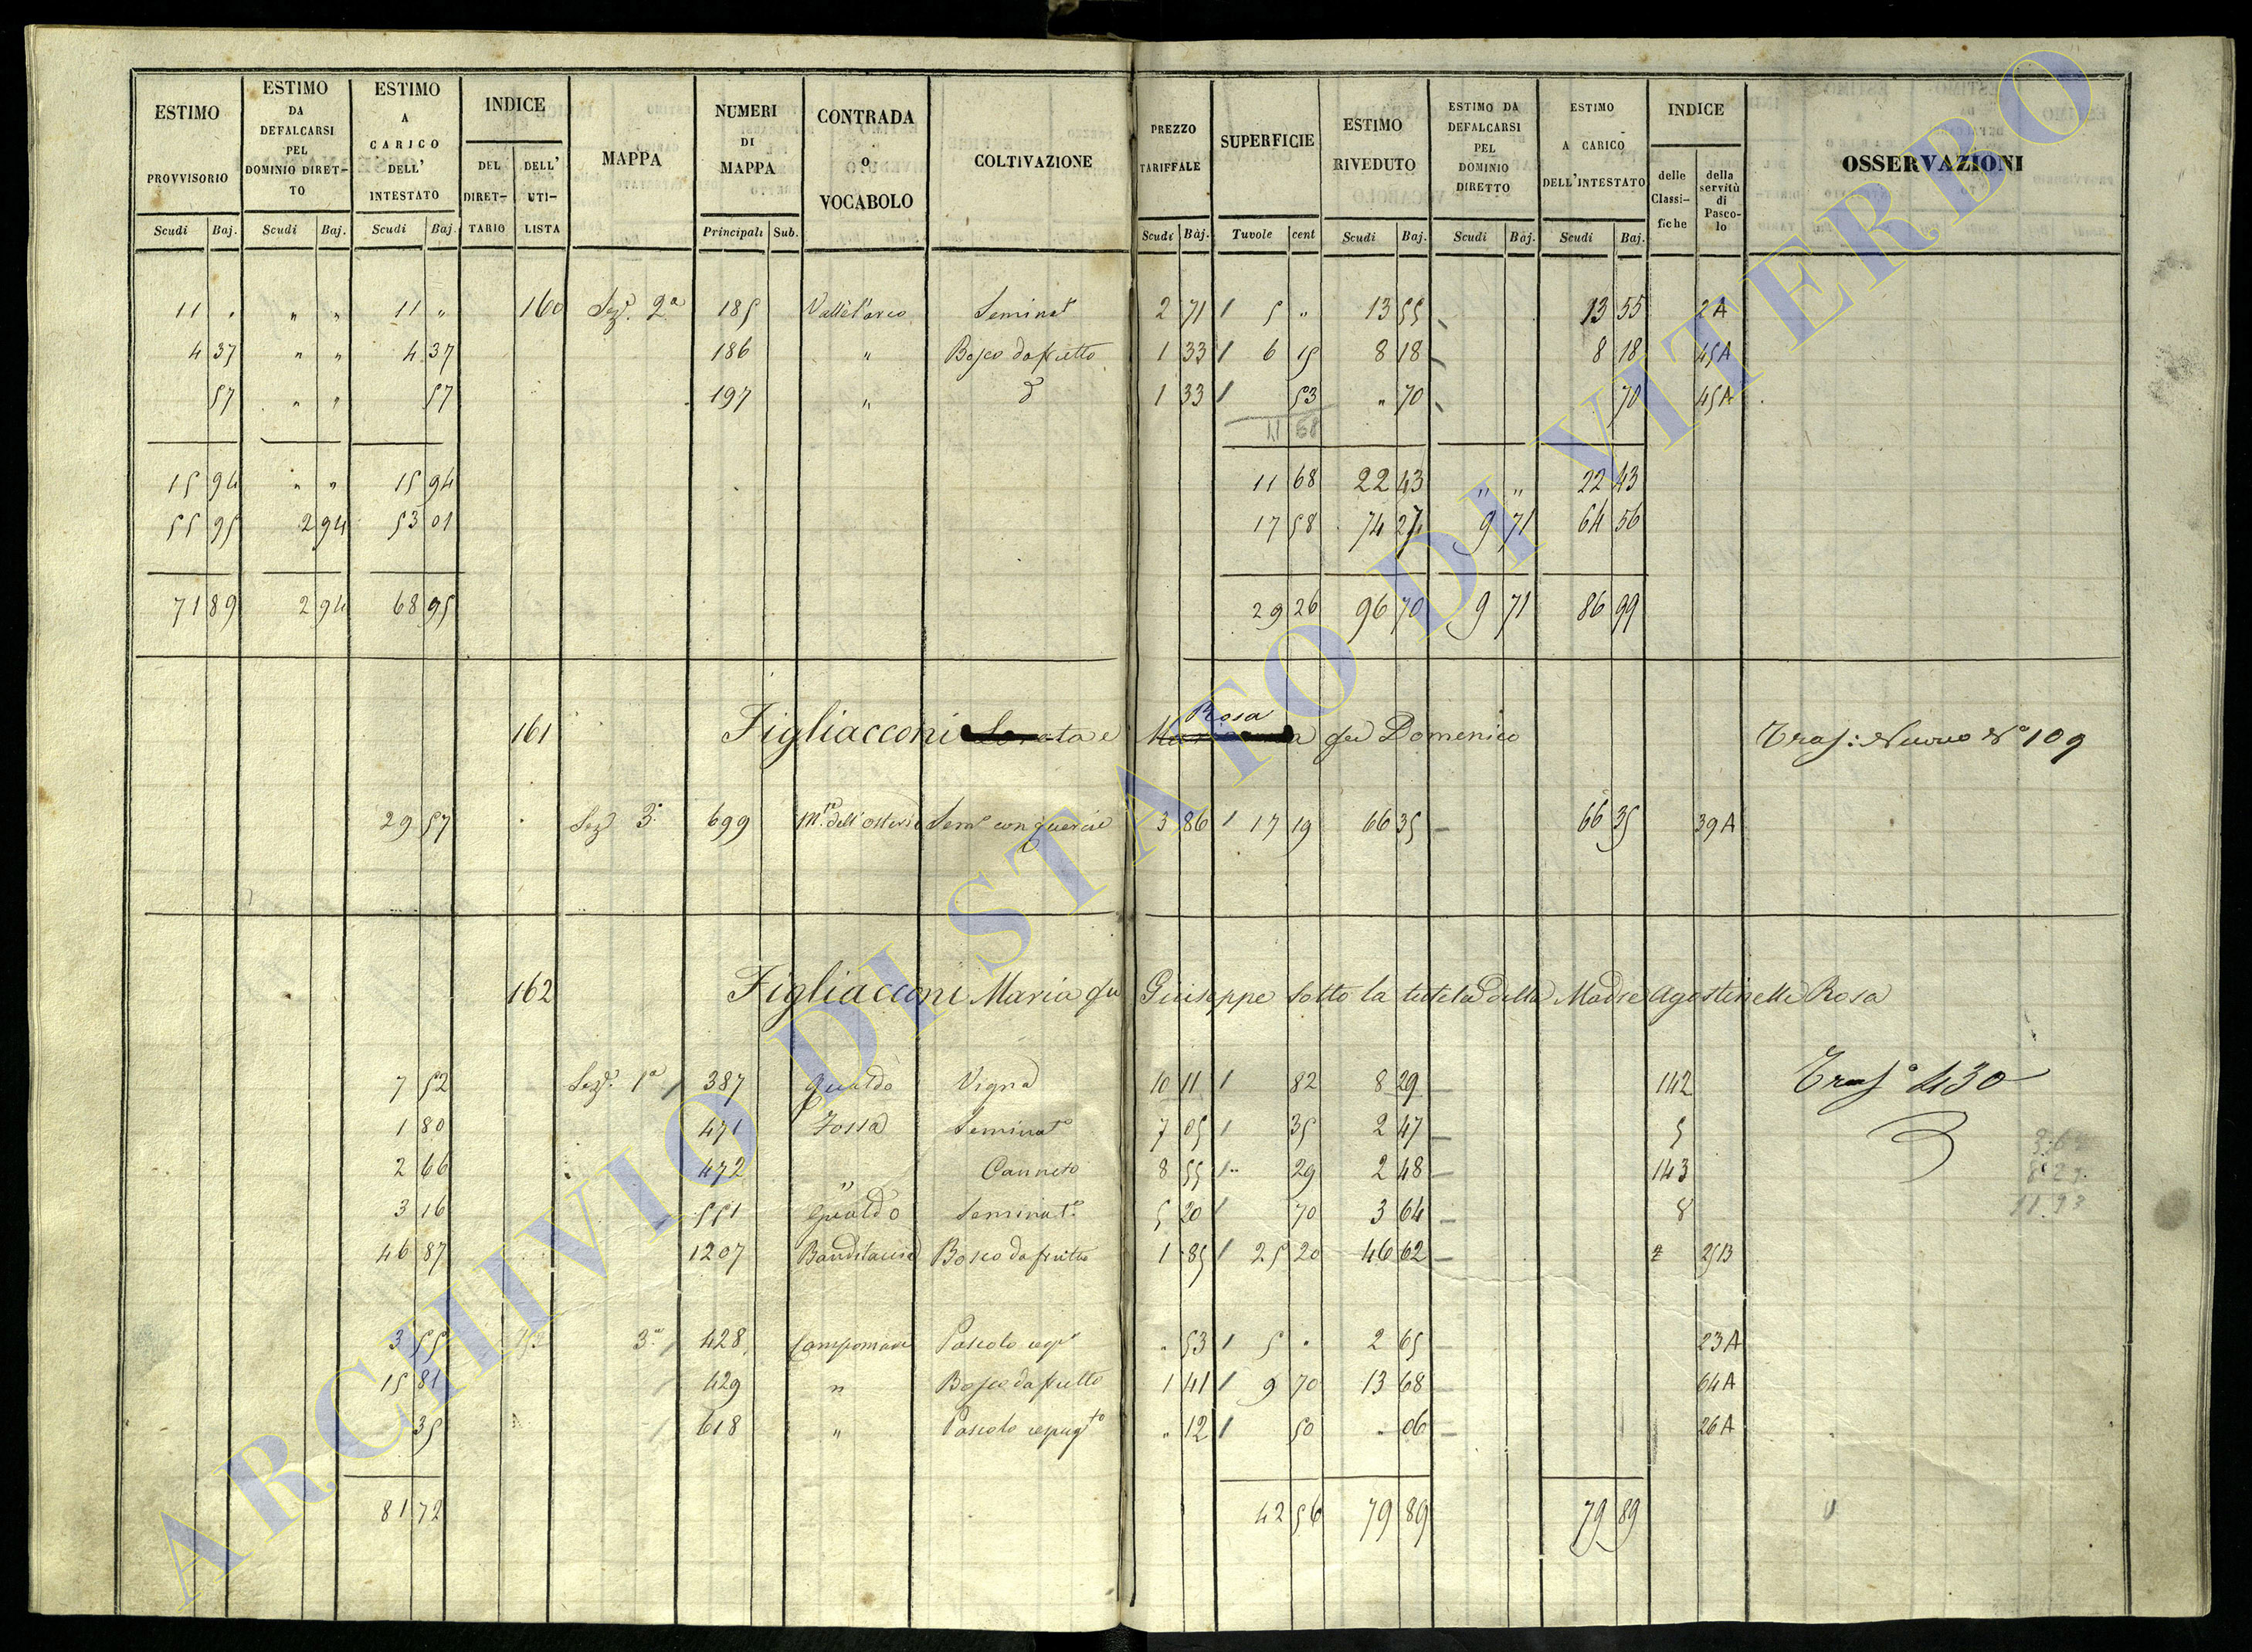 ESTIMO PROVVISORIO | ESTIMO DA DEFALCARSI PEL DOMINIO DIRETTO | ESTIMO A CARICO DELL' INTESTATO | INDICE DEL DIRETTARIO | DELL' UTILISTA | MAPPA | NUMERI DI MAPPA | CONTRADA o VOCABOLO | COLTIVAZIONE | PREZZO TARIFFALE | SUPERFICIE | ESTIMO RIVEDUTO | ESTIMO DA DEFALCARSI PEL DOMINIO DIRETTO | ESTIMO A CARICO DELL'INTESTATO | INDICE delle Classifiche | della servitù di Pascolo | OSSERVAZIONI
Scudi Baj. Scudi Baj. Scudi Baj. Principali Sub. Scudi Baj. Tavole cent Scudi Baj. Scudi Baj. Scudi Baj.
11 " " " 11 " 160 Sez. 2a 185 Seminat 2 71 5 " 13 55 13 55 2A
4 37 " " 4 37 186 " Bosco da frutto 1 33 6 15 8 18 8 18 45A
57 " " 57 197 " 1 33 53 " 70 70 45A
11 68
15 94 " " 15 94 11 68 22 43 " " 22 43
55 95 2 94 53 01 17 58 74 27 9 71 64 56
71 89 2 94 68 95 29 26 96 70 9 71 86 99
Rosa
161 Figliacconi fu Domenico Nuovo No 109
29 57 Sez 3a 699 Mte dell'osteria Semo con quercie 3 86 17 19 66 35 66 35 39A
162 Figliacconi Maria fu Giuseppe sotto la tutela della Madre Agostinelli Rosa
7 52 Sez. 1a 387 Gualdo Vigna 10 11 82 8 29 142 Traso 430
1 80 471 Fossa Seminato 7 05 35 2 47 5
2 66 472 " Canneto 8 55 29 2 48 143
3 16 551 Gualdo Seminato 5 20 70 3 64 8
46 87 1207 Banditaccia Bosco da frutto 1 85 25 20 46 62 25B
3 55 3a 428 Pascolo 53 5 " 2 65 23A
15 81 429 " Bosco da frutto 1 41 9 70 13 68 64A
35 618 " Pascolo cespugto " 12 50 " 06 26A
81 72 42 56 79 89 79 89
3.64
8 29
11.93
ARCHIVIO DI STATO DI VITERBO